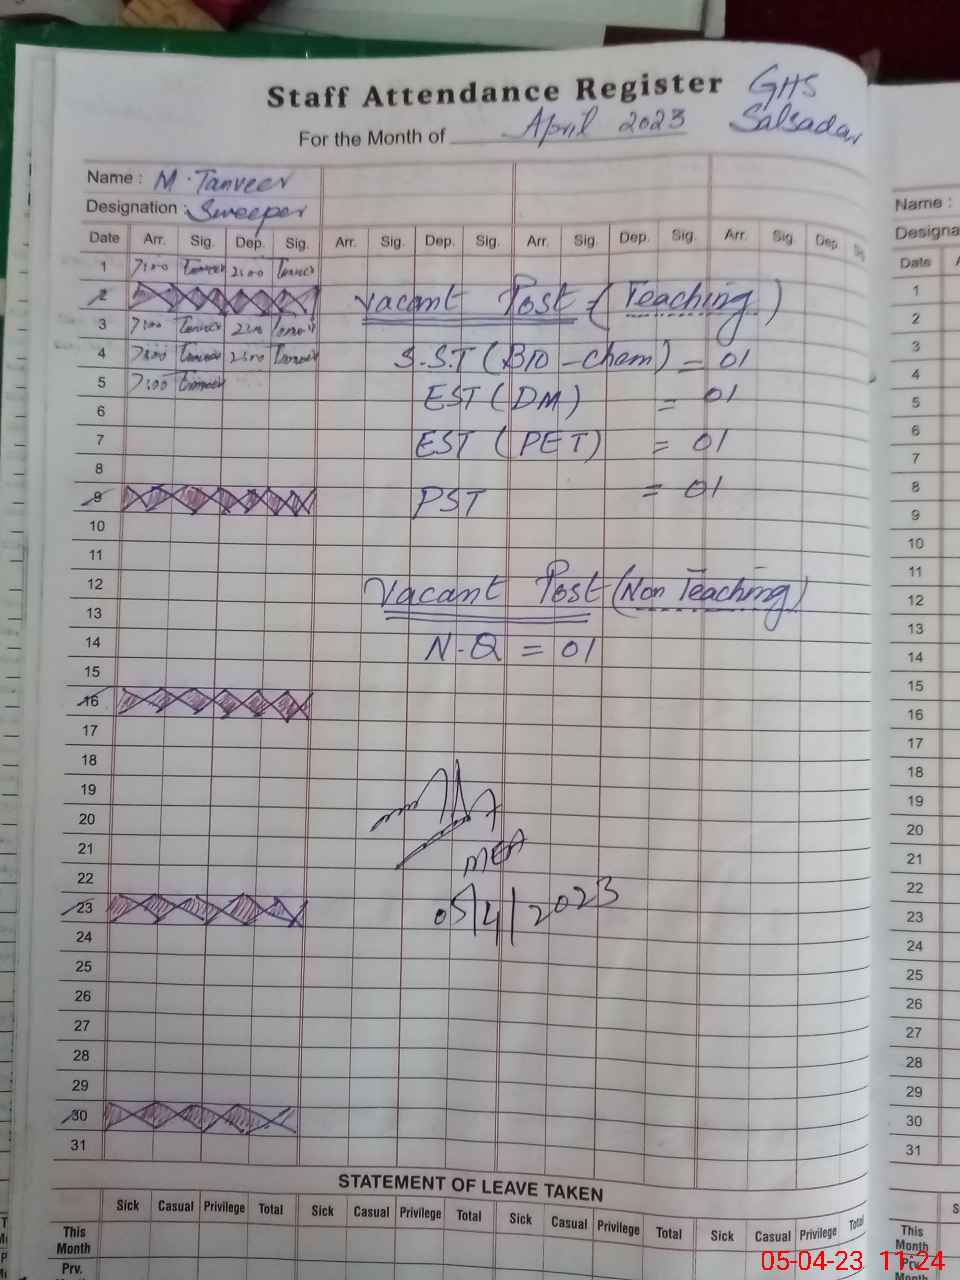 Staff Attendance Register GHS
For the Month of April 2023 Salsadar
Name : M. Tanveer
Designation : Sweeper
Date Arr. Sig. Dep. Sig. Arr. Sig. Dep. Sig. Arr. Sig. Dep. Sig. Arr. Sig. Dep. Sig
1 7:00 Tanveer 2:00 Tanveer
2
Vacant Post (Teaching)
3 7:00 Tanveer 2:00 Tanveer
4 7:00 Tanveer 2:00 Tanveer
S.ST (BIO-chem) = 01
5 7:00 Tanveer
EST (DM) = 01
6
7
EST (PET) = 01
8
9
PST = 01
10
11
12
Vacant Post (Non Teaching)
13
14
N-Q = 01
15
16
17
18
19
20
21
MEA
22
23
05/4/2023
24
25
26
27
28
29
30
31
STATEMENT OF LEAVE TAKEN
Sick Casual Privilege Total Sick Casual Privilege Total Sick Casual Privilege Total Sick Casual Privilege Total
This
Month
Prv.
Name :
Designa
Date
1
2
3
4
5
6
7
8
9
10
11
12
13
14
15
16
17
18
19
20
21
22
23
24
25
26
27
28
29
30
31
This
Month
Prv.
Month
05-04-23 11:24